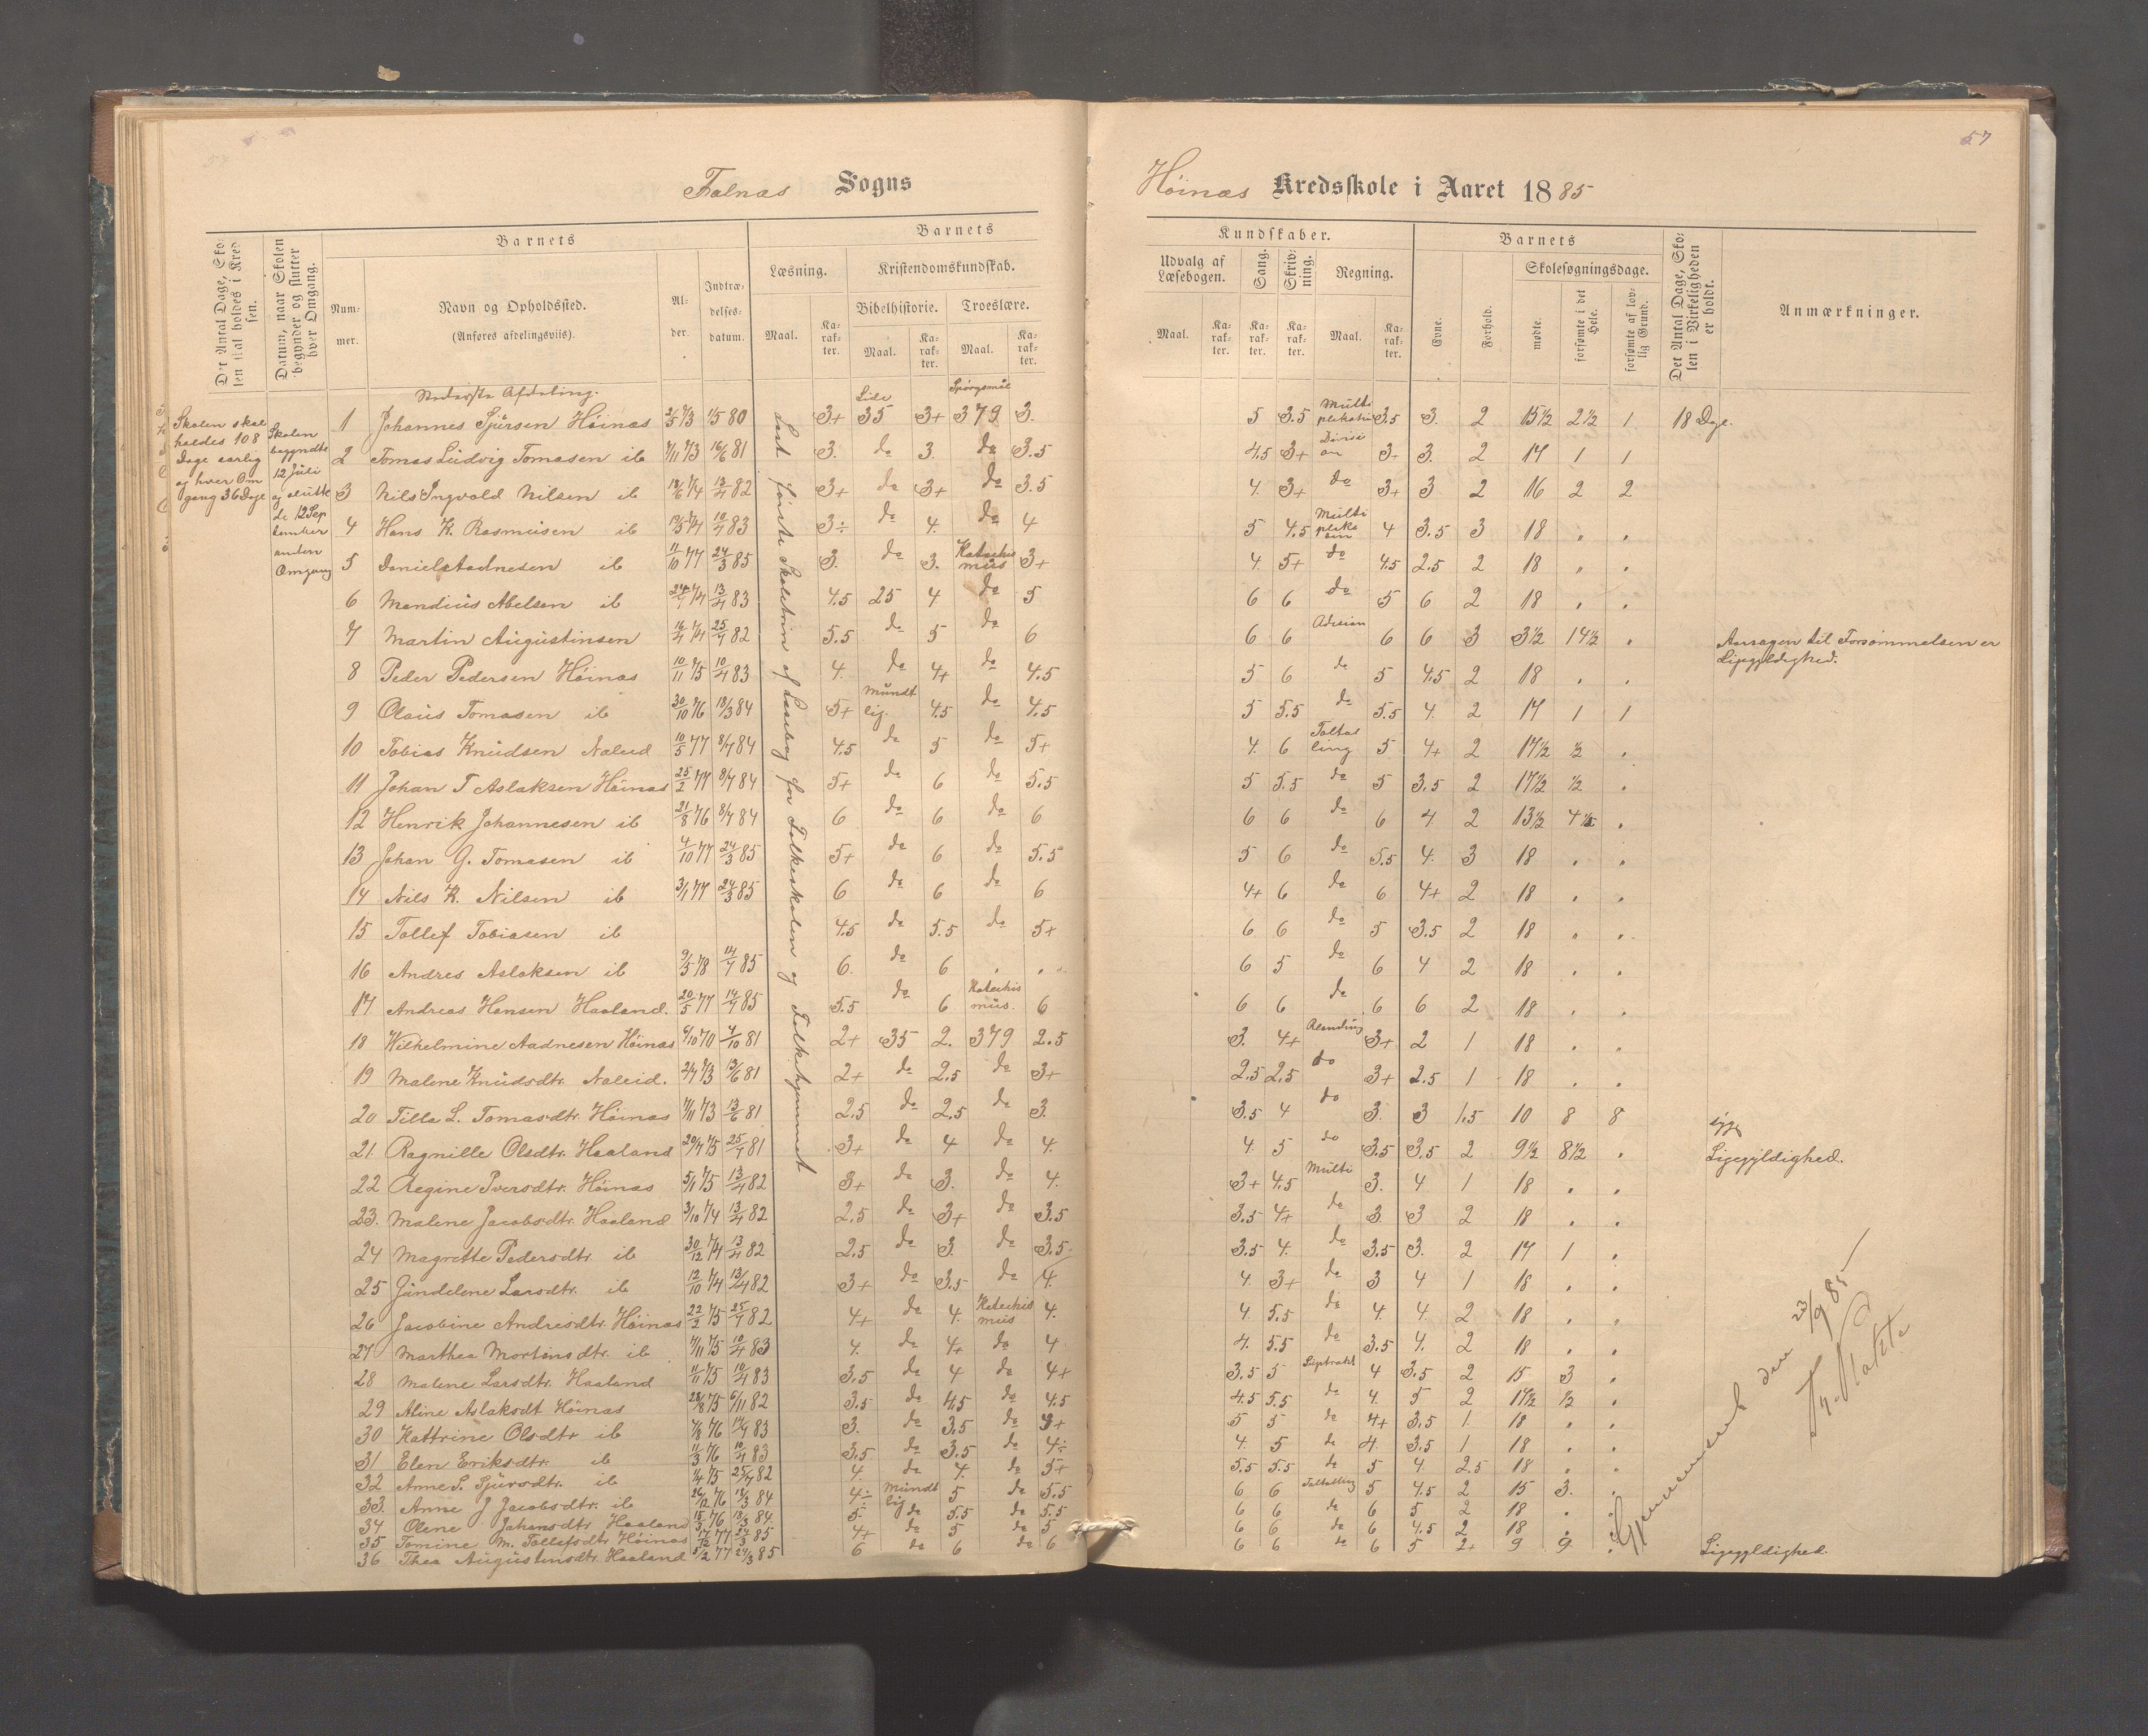 57
Falnæs Sogns
Höinæs Kredsskole i Aaret 1885
Det Antal Dage, Skolen skal holdes i Kredsen.
Datum, naar Skolen begynder og slutter hver Omgang.
Barnets
Nummer.
Navn og Opholdssted.
(Anføres afdelingsviis).
Alder.
Indtrædelsesdatum.
Barnets
Læsning.
Maal.
Karakter.
Kristendomskundskab.
Bibelhistorie.
Maal.
Karakter.
Troeslære.
Maal.
Karakter.
Kundskaber.
Udvalg af Læsebogen.
Maal.
Karakter.
Sang.
Karakter.
Skrivning.
Karakter.
Regning.
Maal.
Karakter.
Barnets
Evne.
Forhold.
Skolesøgningsdage.
mødte.
forsømte i det Hele.
forsømte af lovlig Grund.
Det Antal Dage, Skolen i Virkeligheden er holdt.
Anmærkninger.
Skolen skal
holdes 108
Dage aarlig
og hver Om
gang 36 Dage
Skolen
begyndte
12 Juli
og slutte
de 12 Sep
tember
anden
Omgang
Nederste Afdeling.
Læst første Skoletrin af Læsebog for Folkeskolen og Folkehjemmet
1 Johannes Sjursen Höinæs 2/5 73 1/5 80 3+ Side 35 3+ Spörgsmål 379 3. 5 3.5 Multiplikation 3.5 3. 2 15½ 2½ 1 18 Dage.
2 Tomas Ludvig Tomasen ib 7/11 73 16/6 81 3. do 3. do 3.5 4.5 3+ Division 3+ 3. 2 17 1 1
3 Nils Ingvald Nilsen ib 18/6 74 13/4 82 3+ do 3+ do 3.5 4. 3+ do 3+ 3 2 16 2 2
4 Hans K. Rasmusen ib 19/3 74 10/4 83 3÷ do 4. do 4 5 4.5 4 3.5 3 18 " .
5 Daniel Aadnesen ib 11/10 77 24/3 85 3. do 3. Katechismus 3+ 4. 5+ do 4.5 2.5 2 18 " .
6 Mandius Abelsen ib 24/7 74 13/4 83 4.5 25 4 do 5 6 6 do 5 6 2 18 . .
7 Martin Augustinsen 16/4 74 25/7 82 5.5 do 5 do 6 6 6 Adision 6 6 3 3½ 14½ . Aarsagen til Forsömmelsen er
Ligegyldighed.
8 Peder Pedersen Höinæs 10/11 75 10/4 83 4. do 4+ do 4.5 5 6 do 5 4.5 2 18 . .
9 Olaus Tomasen ib 30/10 76 18/3 84 5+ Mundtlig. 4.5 do 4.5 5 5.5 do 5.5 4. 2 17 1 1
10 Tobias Knudsen Naleid 10/5 77 8/7 84 4.5 do 5 do 5+ 4. 6 Taltælling 5 4+ 2 17½ ½ .
11 Johan T Aslaksen Höinæs 25/2 77 8/7 84 5+ do 6 do 5.5 5 5.5 do 5 3.5 2 17½ ½ .
12 Henrik Johannesen ib 21/8 76 8/7 84 6 do 6 do 6 6 6 do 6 4 2 13½ 4½ .
13 Johan G. Tomasen ib 4/10 77 24/3 85 5+ do 6 do 5.5 5 6 do 5.5 4. 3 18 . .
14 Nils K. Nilsen ib 3/1 77 24/3 85 6 do 6 do 6 4+ 6 do 6 4+ 2 18 . .
15 Tollef Tobiasen ib 4.5 do 5.5 do 5+ 6 6 do 5 3.5 2 18 . .
16 Andres Aslaksen ib 9/5 78 14/7 85 6. do 6 . . 6 5 do 6 4 2 18 . .
17 Andreas Hansen Haaland. 20/5 77 14/7 85 5.5 do 6 Katechismus. 6 6 6 do 6 6 2 18 . .
18 Wilhelmine Aadnesen Höinæs 6/10 70 4/10 81 2+ 35 2. 379 2.5 3. 4+ 3+ 2 1 18 . .
19 Malene Knudsdtr. Naleid. 2/7 73 13/6 81 2+ do 2.5 do 3+ 2.5 2.5 do 3+ 2.5 1 18 . .
20 Tilla L. Tomasdtr. Höinæs 7/11 73 13/6 81 2.5 do 2.5 do 3. 3.5 4 do 3. 3 1.5 10 8 8 syg
21. Ragnille Olsdtr. Haaland 20/7 75 25/7 81 3+ do 4 do 4. 4. 5 do 3.5 3.5 2 9½ 8½ . Ligegyldighed.
22 Regine Iversdtr. Höinæs 5/1 75 13/4 82 3+ do 3. do 4. 3+ 4.5 Multi 3. 4 1 18 . .
23. Malene Jacobsdtr. Haaland 3/10 74 13/4 82 2.5 do 3+ do 3.5 3.5 4+ do 3. 3 2 18 . .
24 Magrette Pedersdtr. ib 30/12 74 13/4 82 2.5 do 3. do 3.5 3.5 4. do 3.5 3. 2 17 1 .
25 Gundelene Larsdtr. ib 12/10 74 13/4 82 3+ do 3.5 do 4. 4. 3+ do 3 4 1 18 . .
26 Jacobine Andresdtr. Höinæs 22/2 75 25/7 82 4+ do 4. Katechismus 4. 4. 5.5 do 4. 4. 2 18 . .
27 Marthea Mortensdtr. ib 7/11 75 10/4 83 4. do 4+ do 4 4. 5.5 do 3.5 4. 2 18 . .
28 Malene Larsdtr. Haaland 11/11 75 10/4 83 3.5 do 4 do 4+ 3.5 5 4 3.5 2 15 3 .
29 Aline Aslaksdt Höinæs 28/8 75 6/11 82 3.5 do 4.5 do 4.5 4.5 5.5 do 4. 5 2 17½ ½ .
30 Kattrine Olsdtr ib 7/8 76 14/7 83 3. do 3.5 do 3+ 5 5 do 4+ 3.5 1. 18 . .
31 Elen Eriksdtr. ib 11/3 76 10/4 83 3.5 do 3.5 do 4÷ 4. 5 do 4. 3.5 1 18 . .
32 Anne S. Sjursdtr. ib 1/4 75 25/7 82 4. do 4. do 5+ 5.5 5.5 do 5 4. 2.5 18 . .
33. Anne J Jacobsdtr. ib 26/12 76 18/3 84 4÷ Mundtlig 5 do 5.5 6 6 Taltælling 5 4.5 2 15 3. .
34 Olene Johansdtr Haaland 15/3 76 18/3 84. 5. do 5.5 do 5.5 6 6 do 6 5 2 18 . .
35 Tomine M. Tollefsdtr Höinæs 17/12 77 24/3 85 4+ do 5 do 5 6 6 do 6 4.5 2 18 . .
36 Thea Augustinsdtr. Haaland 5/2 77 24/3 85 6 do 6 do 6 6 6 do 6 5 2+ 9 9 . Ligegyldighed.
Gjennemseet den 23/9 85